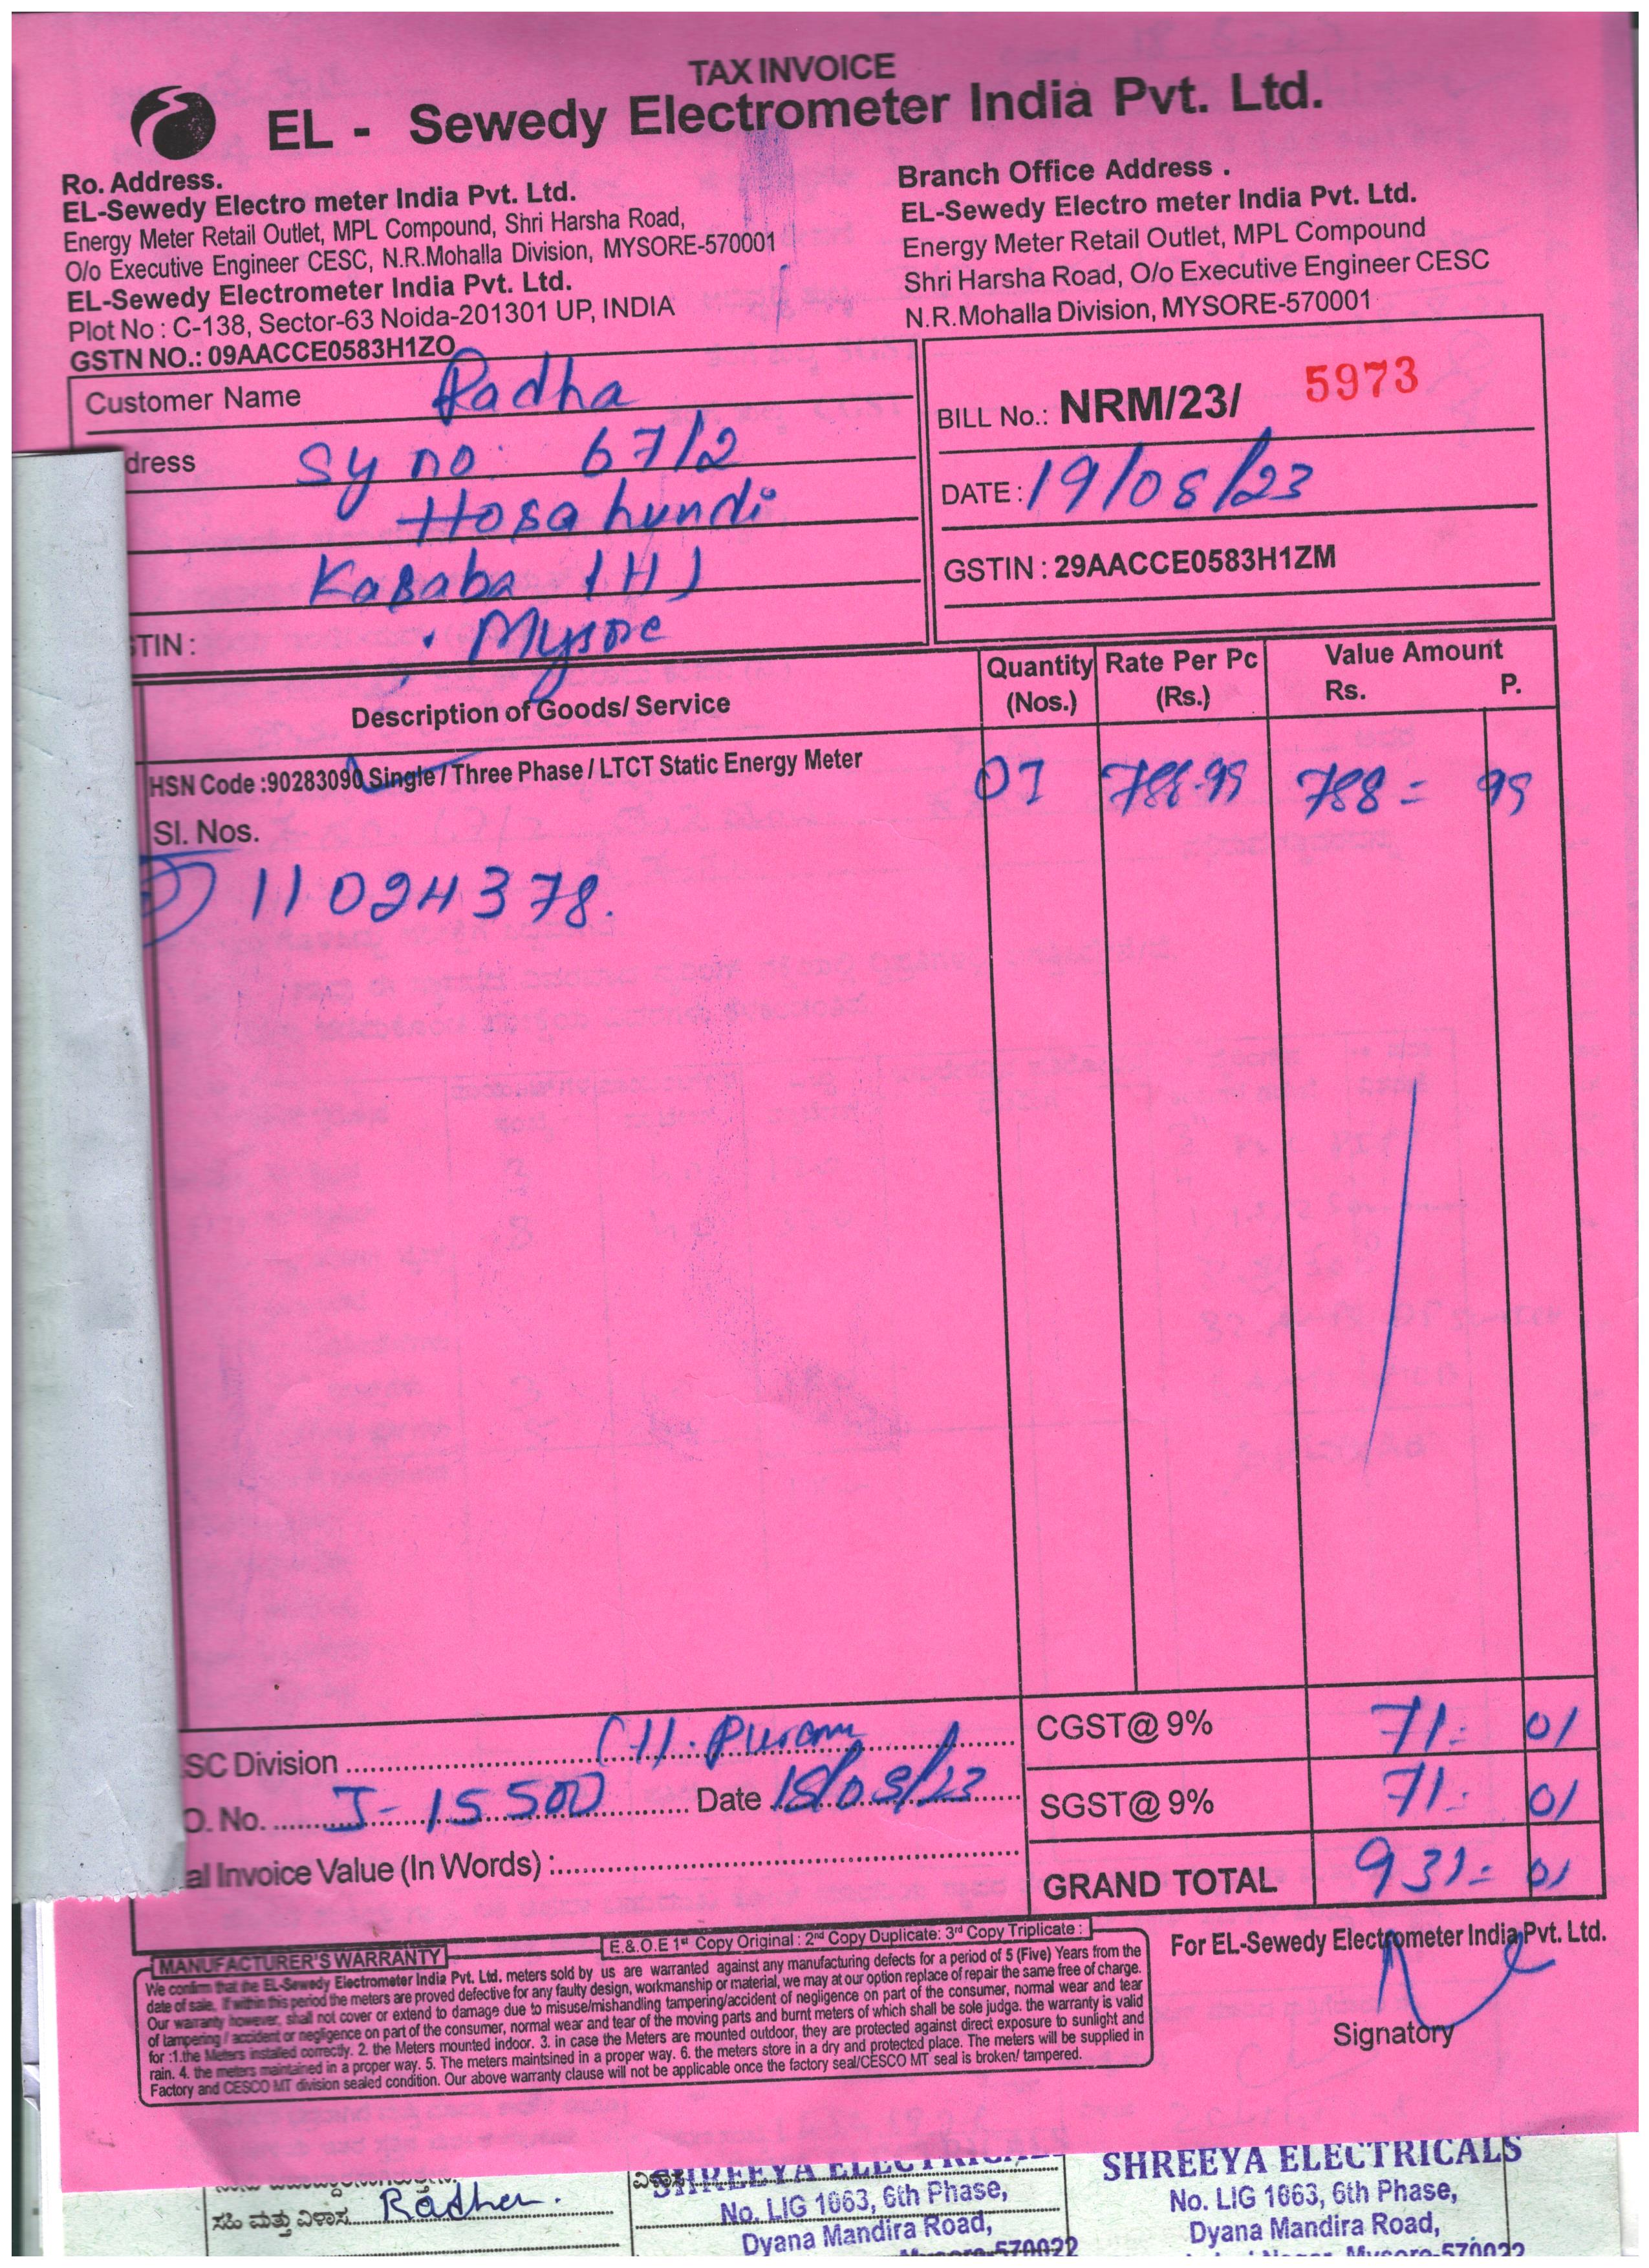 TAX INVOICE
EL - Sewedy Electrometer India Pvt. Ltd.
Ro. Address.
EL-Sewedy Electro meter India Pvt. Ltd.
Energy Meter Retail Outlet, MPL Compound, Shri Harsha Road,
O/o Executive Engineer CESC, N.R.Mohalla Division, MYSORE-570001
EL-Sewedy Electrometer India Pvt. Ltd.
Plot No : C-138, Sector-63 Noida-201301 UP, INDIA
GSTN NO.: 09AACCE0583H1ZO
Branch Office Address .
EL-Sewedy Electro meter India Pvt. Ltd.
Energy Meter Retail Outlet, MPL Compound
Shri Harsha Road, O/o Executive Engineer CESC
N.R.Mohalla Division, MYSORE-570001
Customer Name Radha
dress Sy no: 67/2
Hosahundi
Kasaba (H)
TIN : Mysore
BILL No.: NRM/23/ 5973
DATE : 19/08/23
GSTIN : 29AACCE0583H1ZM
Description of Goods/ Service Quantity (Nos.) Rate Per Pc (Rs.) Value Amount Rs. P.
HSN Code :90283090 Single / Three Phase / LTCT Static Energy Meter 01 788.99 788 = 99
Sl. Nos.
11024378.
SC Division Puram CGST@ 9% 71= 01
O. No. J-15500 Date 18/08/23 SGST@ 9% 71= 01
al Invoice Value (In Words) : GRAND TOTAL 931= 01
E.&.O.E 1st Copy Original : 2nd Copy Duplicate: 3rd Copy Triplicate :
MANUFACTURER'S WARRANTY
We confirm that the EL-Sewedy Electrometer India Pvt. Ltd. meters sold by us are warranted against any manufacturing defects for a period of 5 (Five) Years from the
date of sale. If within this period the meters are proved defective for any faulty design, workmanship or material, we may at our option replace of repair the same free of charge.
Our warranty however, shall not cover or extend to damage due to misuse/mishandling tampering/accident of negligence on part of the consumer, normal wear and tear
of tampering / accident or negligence on part of the consumer, normal wear and tear of the moving parts and burnt meters of which shall be sole judge. the warranty is valid
for :1.the Meters installed correctly. 2. the Meters mounted indoor. 3. in case the Meters are mounted outdoor, they are protected against direct exposure to sunlight and
rain. 4. the meters maintained in a proper way. 5. The meters maintsined in a proper way. 6. the meters store in a dry and protected place. The meters will be supplied in
Factory and CESCO MT division sealed condition. Our above warranty clause will not be applicable once the factory seal/CESCO MT seal is broken/ tampered.
For EL-Sewedy Electrometer India Pvt. Ltd.
Signatory
ಸಹಿ ಮತ್ತು ವಿಳಾಸ Radha.
ವಿಳಾಸ
SHREEYA ELECTRICALS
No. LIG 1063, 6th Phase,
Dyana Mandira Road,
Mysore-570022
SHREEYA ELECTRICALS
No. LIG 1063, 6th Phase,
Dyana Mandira Road,
Mysore-570022